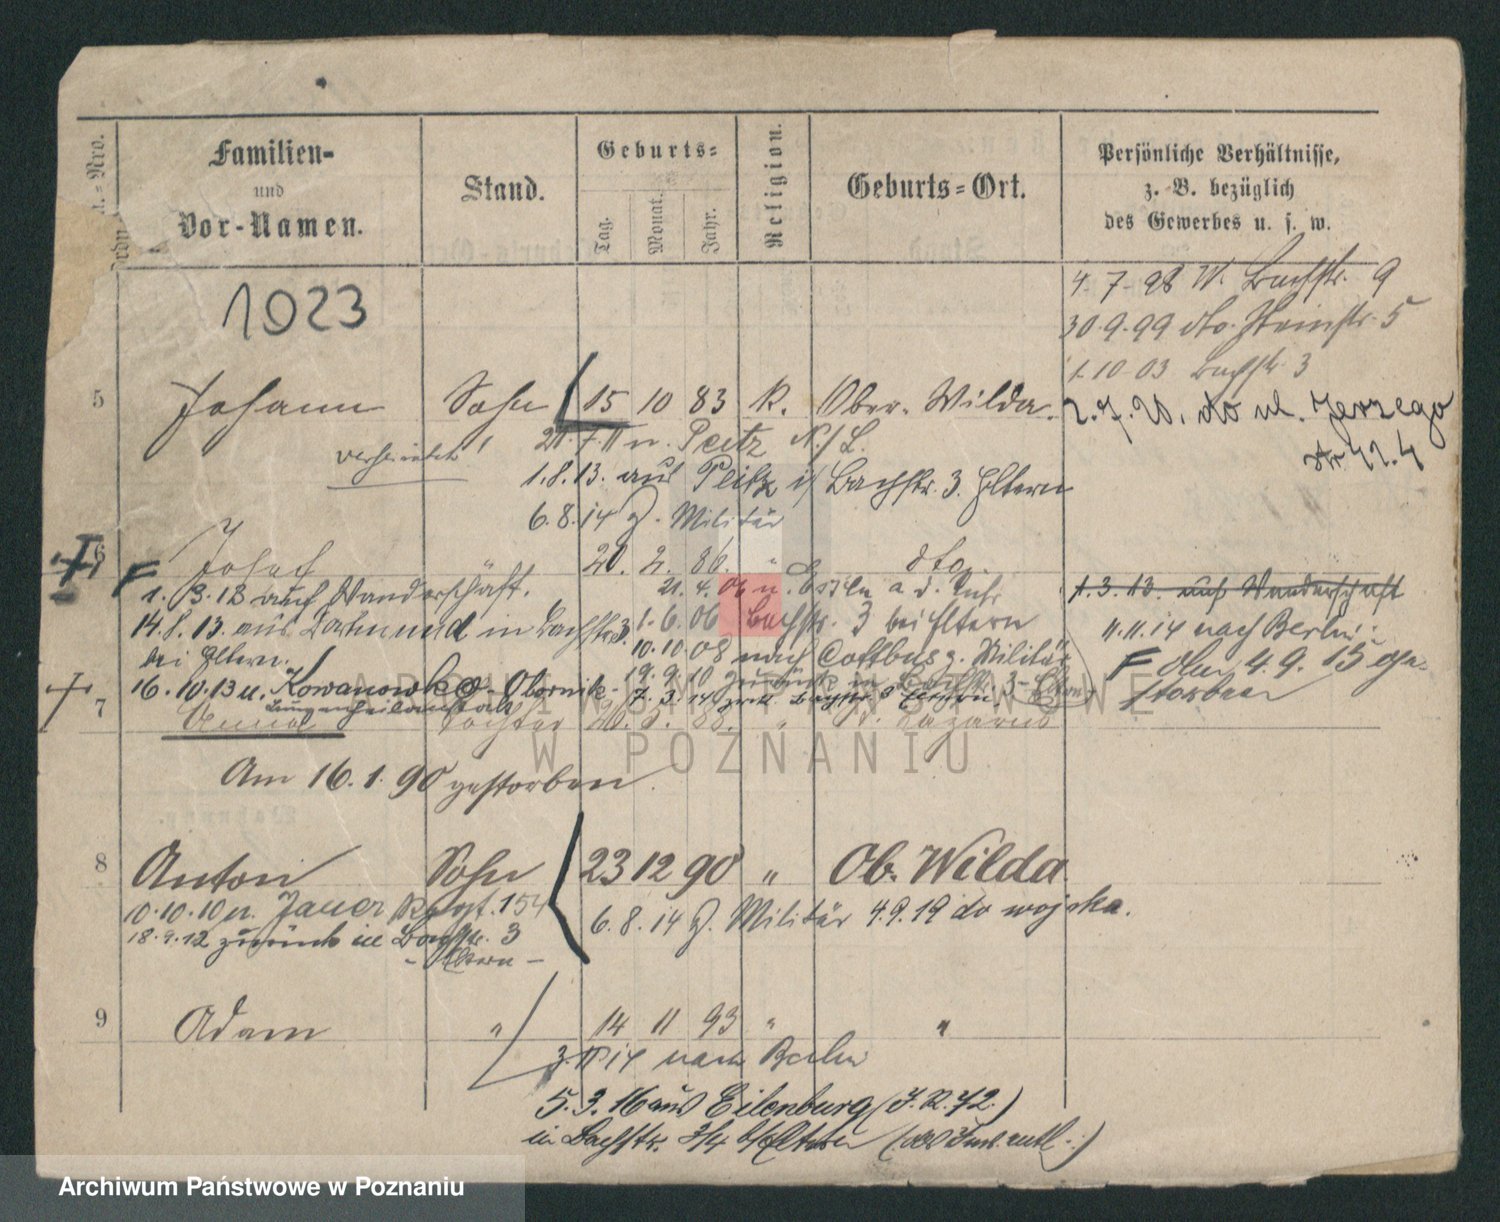 Ordn.-Nro.
Familien-
und
Vor-Namen.
Stand.
Geburts-
Tag.
Monat.
Jahr.
Religion.
Geburts-Ort.
Persönliche Verhältnisse,
z. B. bezüglich
des Gewerbes u. s. w.
1023
4. 7. 98 W. Bachstr. 9
30. 9. 99 dto. Steinstr. 5
1. 10. 03 Bachstr. 3
5 Johann Sohn 15 10 83 K. Ober-Wilda.
2. 7. 20. do ul. Jerzego
verheiratet!
n. Peitz N./L.
1. 8. 13. aus Peitz i/ Bachstr. 3. Eltern
6. 8. 14 z. Militär
6 Josef " 20. 2. 86. " dto.
F
1. 3. 13 auf Wanderschaft.
21. 4. 06 n. a. d. Ruhr
1. 3. 13. auf Wanderschaft
14. 8. 13. aus Dortmund in Bachstr. 3
bei Eltern.
1. 6. 06 Bachstr. 3 bei Eltern
11. 11. 14 nach Berlin
10. 10. 08 nach Cottbus z. Militär
F 4. 9. 15 ge-
storben
16. 10. 13 n. Kowanowko-Obornik
Lungenheilanstalt
19. 9. 10 zurück in Bachstr. 3 - Eltern
7. 3. 14 zrck. Bachstr. 3 Eltern
7 Anna Tochter 20. 88. " St. Lazarus
Am 16. 1. 90 gestorben.
8 Anton Sohn 23 12 90 " Ob. Wilda
10. 10. 10 n. Jauer 154
6. 8. 14 z. Militär 4. 9. 19 do wojska.
18. 9. 12 zurück in Bachstr. 3
- Eltern -
9 Adam " 14 11 93 " "
14 nach Berlin
5. 3. 16 aus Eilenburg (J. R. 72.)
in Bachstr. 3 b/Eltern
ARCHIWUM PAŃSTWOWE
W POZNANIU
Archiwum Państwowe w Poznaniu